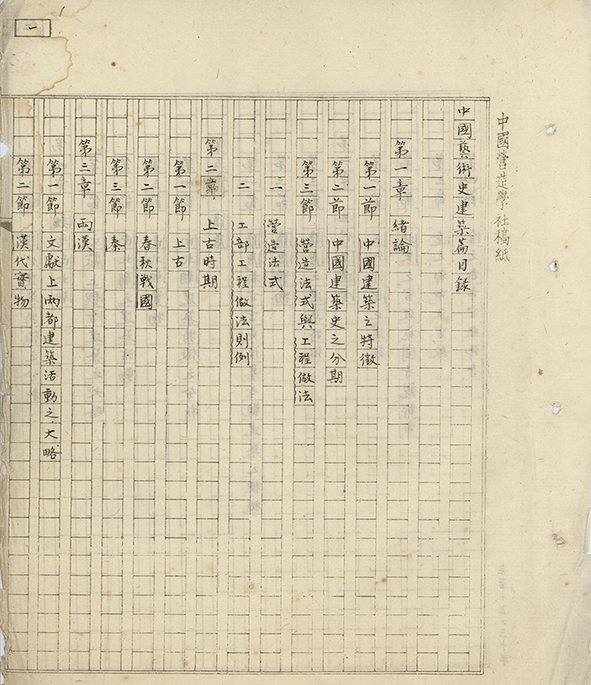 中國營造學社稿紙
中國藝術史建築篇目錄
第一章　緒論
第一節　中國建築之特徵
第二節　中國建築史之分期
第三節　營造法式與工程做法
一　營造法式
二　工部工程做法則例
第二章　上古時期
第一節　上古
第二節　春秋戰國
第三節　秦
第三章　兩漢
第一節　文獻上兩都建築活動之大略
第二節　漢代實物
一